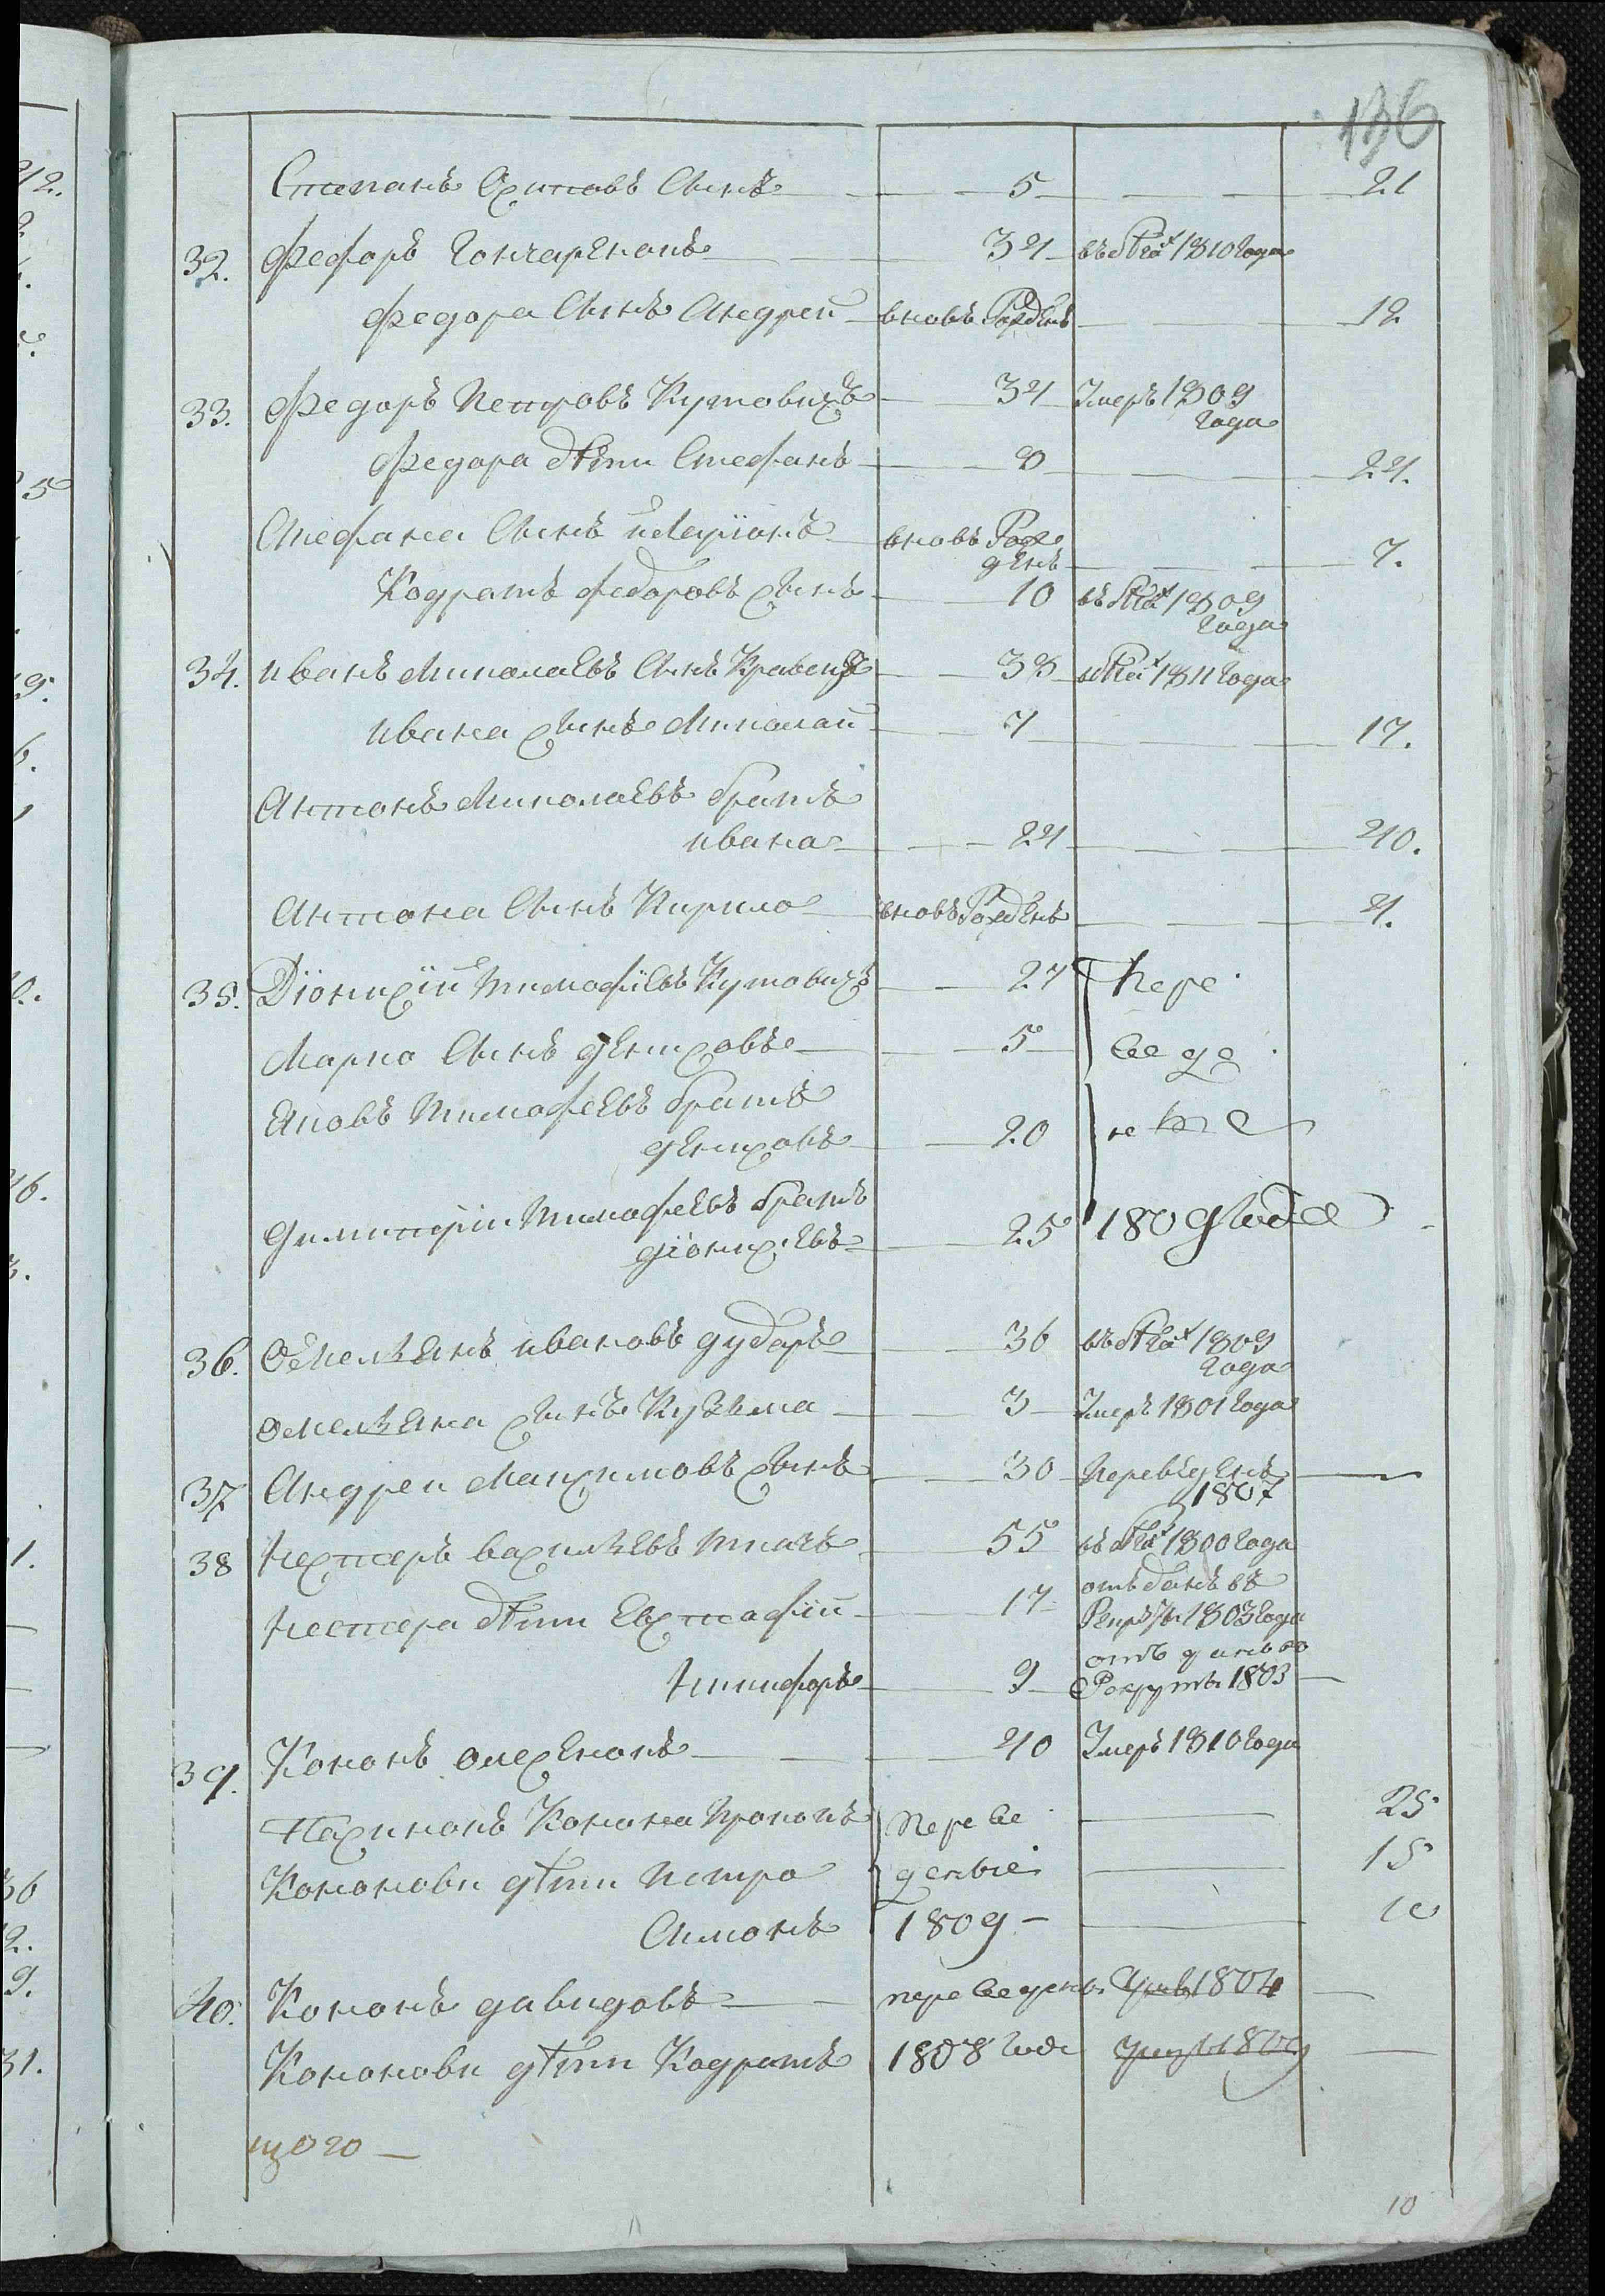 136
Степанъ Осиповъ Сынъ 5 21
32. Федоръ Гончаренокъ 34 въ бѣгах 1810 Года
Федора Сынъ Андрей вновь Рожденъ 12
33. Федоръ Петровъ Кутовихъ 34 Умеръ 1809
Года
Федора дѣти Стефанъ 8 24.
Стефана Сынъ Иларіонъ вновь Рож
денъ 7.
Кодратъ Федоровъ сынъ 10 въ бѣгах 1809
Года
34. Иванъ Миколаевъ Сынъ Кравецъ 38 1811 Года
Ивана сынъ Миколай 7 17.
Антонъ Миколаевъ братъ
Ивана 24 40.
Антона Сынъ Кирило вновь Рожденъ 4.
35. Діонисій Тимофіевъ Кутовихъ 27 Пере
Марко Сынъ денисовъ 5 веде
Яковъ Тимофеевъ братъ
денисовъ 20 не
Димитрій Тимофеевъ братъ
діонисіевъ 25 1809 года
36. Омельянъ Ивановъ дударъ 36 въ бѣгах 1809
Года
Омельяна сынъ Кузьма 3 Умеръ 1801 Года
37 Андреи Максимовъ сынъ 30 Переведенъ
1807
38 Нестеръ васильевъ Ткачъ 55 въ бѣгах 1800 Года
отъ данъ въ
Нестера дѣти Евстафій 17 Рекруты 1803 Года
отъ данъ въ
Никифоръ 9 Рекруты 1803
39. Кононъ олесенокъ 40 Умеръ 1810 Года
Пасинокъ Конона Прокопъ Пере ве 25
Кононови дѣти Петро дены 15
Симонъ 1809 10
40. Кононъ давидовъ переведены 1804
Кононови дѣти Кодратъ 1808 Годе 1809
10